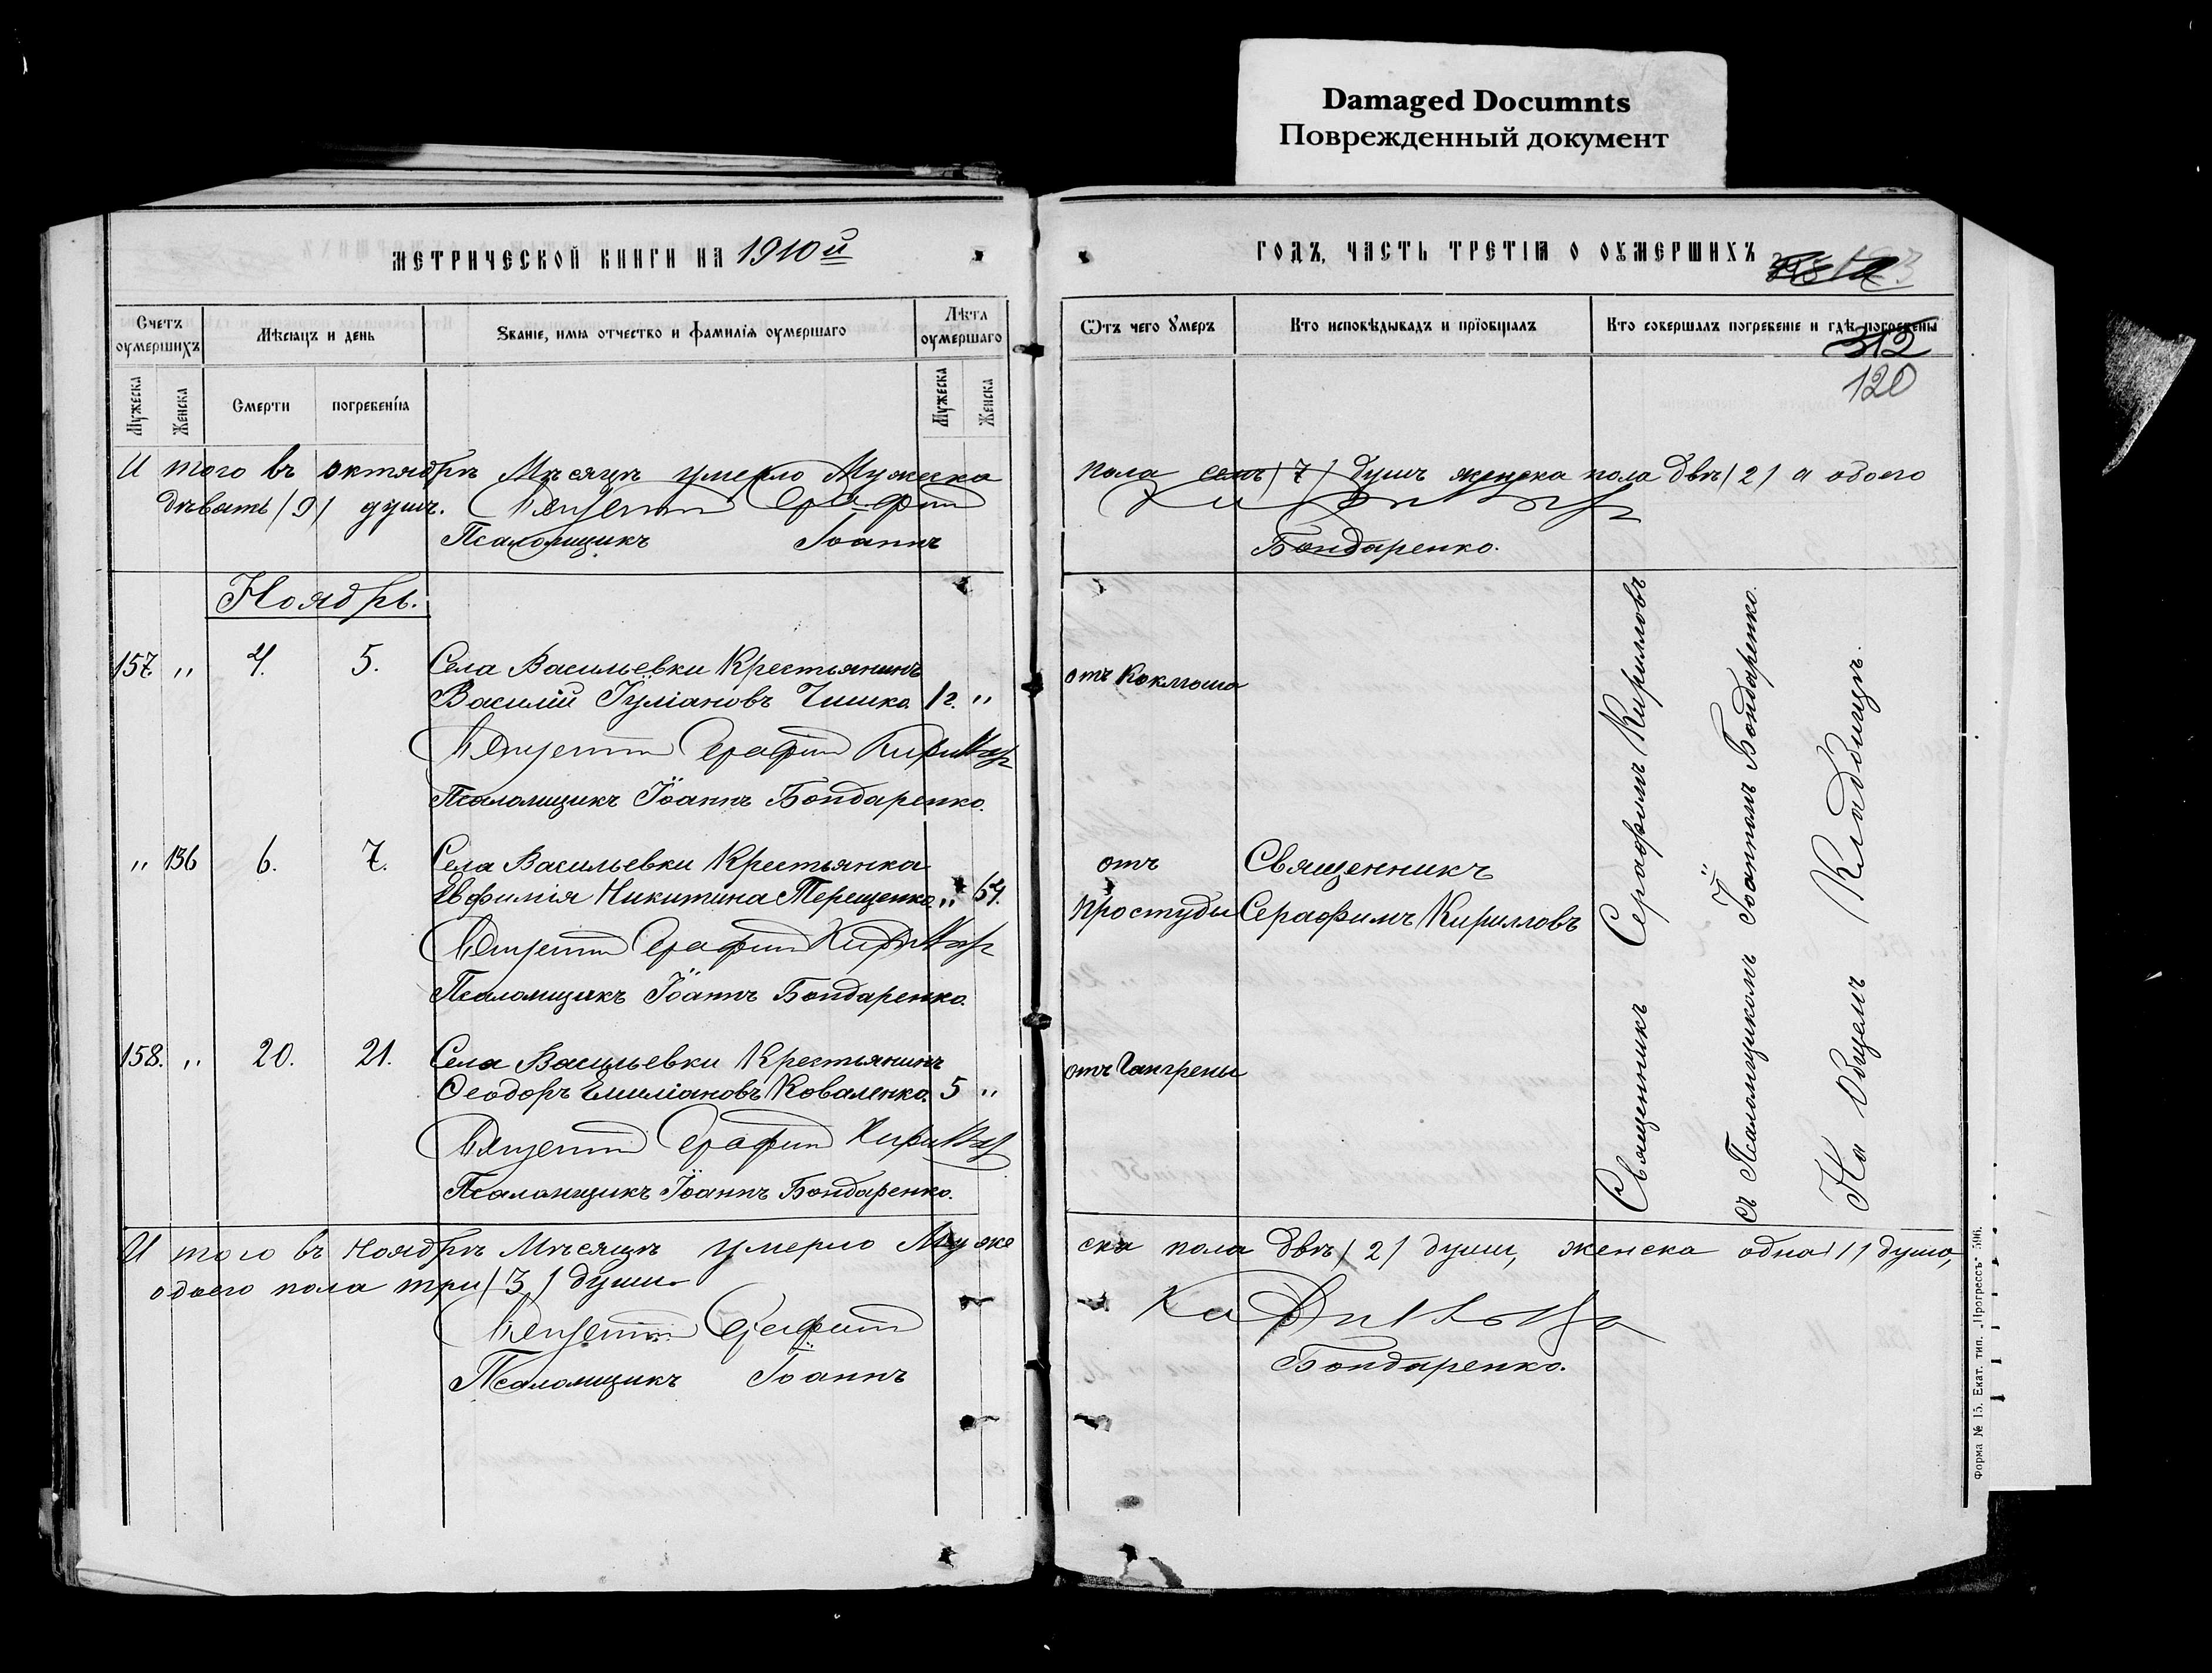 Damaged Documnts
Поврежденный документ
МЕТРИЧЕСКОЙ КНИГИ НА 1910й
ГОДЪ, ЧАСТЬ ТРЕТІѦ О ОУМЕРШИХЪ
Счетъ оумершихъ
Мѣсяцъ и день
Званіе, имѧ отчество и фамиліѧ оумершаго
Лѣта оумершаго
Ѿтъ чего Умеръ
Кто исповѣдывалъ и пріобщалъ
Кто совершалъ погребеніе и гдѣ погребены
312
120
Мужеска
Женска
Смерти
погребеніѧ
Мужеска
Женска
И того въ октябрѣ Мѣсяцѣ умерло Мужеска
пола семь /7/ душъ женска пола двѣ /2/ а обоего
дѣвать /9/ душъ. Священникъ Серафимъ
Кирилловъ
Псаломщикъ Іоаннъ
Бондаренко.
Ноябрь.
157. " 4. 5. Села Васильевки Крестьянинъ
Василій Іуліановъ Чишко. 1 г. "
отъ Коклюша
Священникъ Серафимъ Кирилловъ
Псаломщикъ Іоаннъ Бондаренко.
" 136 6. 7. Села Васильевки Крестьянка
Евфимія Никитина Терещенко. " 64.
отъ
Простуды
Священникъ
Серафимъ Кирилловъ
Священникъ Серафимъ Кирилловъ
Псаломщикъ Іоаннъ Бондаренко.
158. " 20. 21. Села Васильевки Крестьянинъ
Ѳеодоръ Емиліановъ Коваленко. 5 "
отъ Гангрены
Священникъ Серафимъ Кирилловъ
Псаломщикъ Іоаннъ Бондаренко.
Священникъ Серафимъ Кирилловъ
съ Псаломщикомъ Іоанномъ Бондаренко.
На Общемъ Кладбищѣ.
И того въ Ноябрѣ Мѣсяцѣ умерло Муже
ска пола двѣ /2/ души, женска одна /1/ душа,
обоего пола три /3/ души.
Священникъ Серафимъ
Кирилловъ
Псаломщикъ Іоаннъ
Бондаренко.
Форма № 15. Екат. тип. „Прогрессъ" 596.